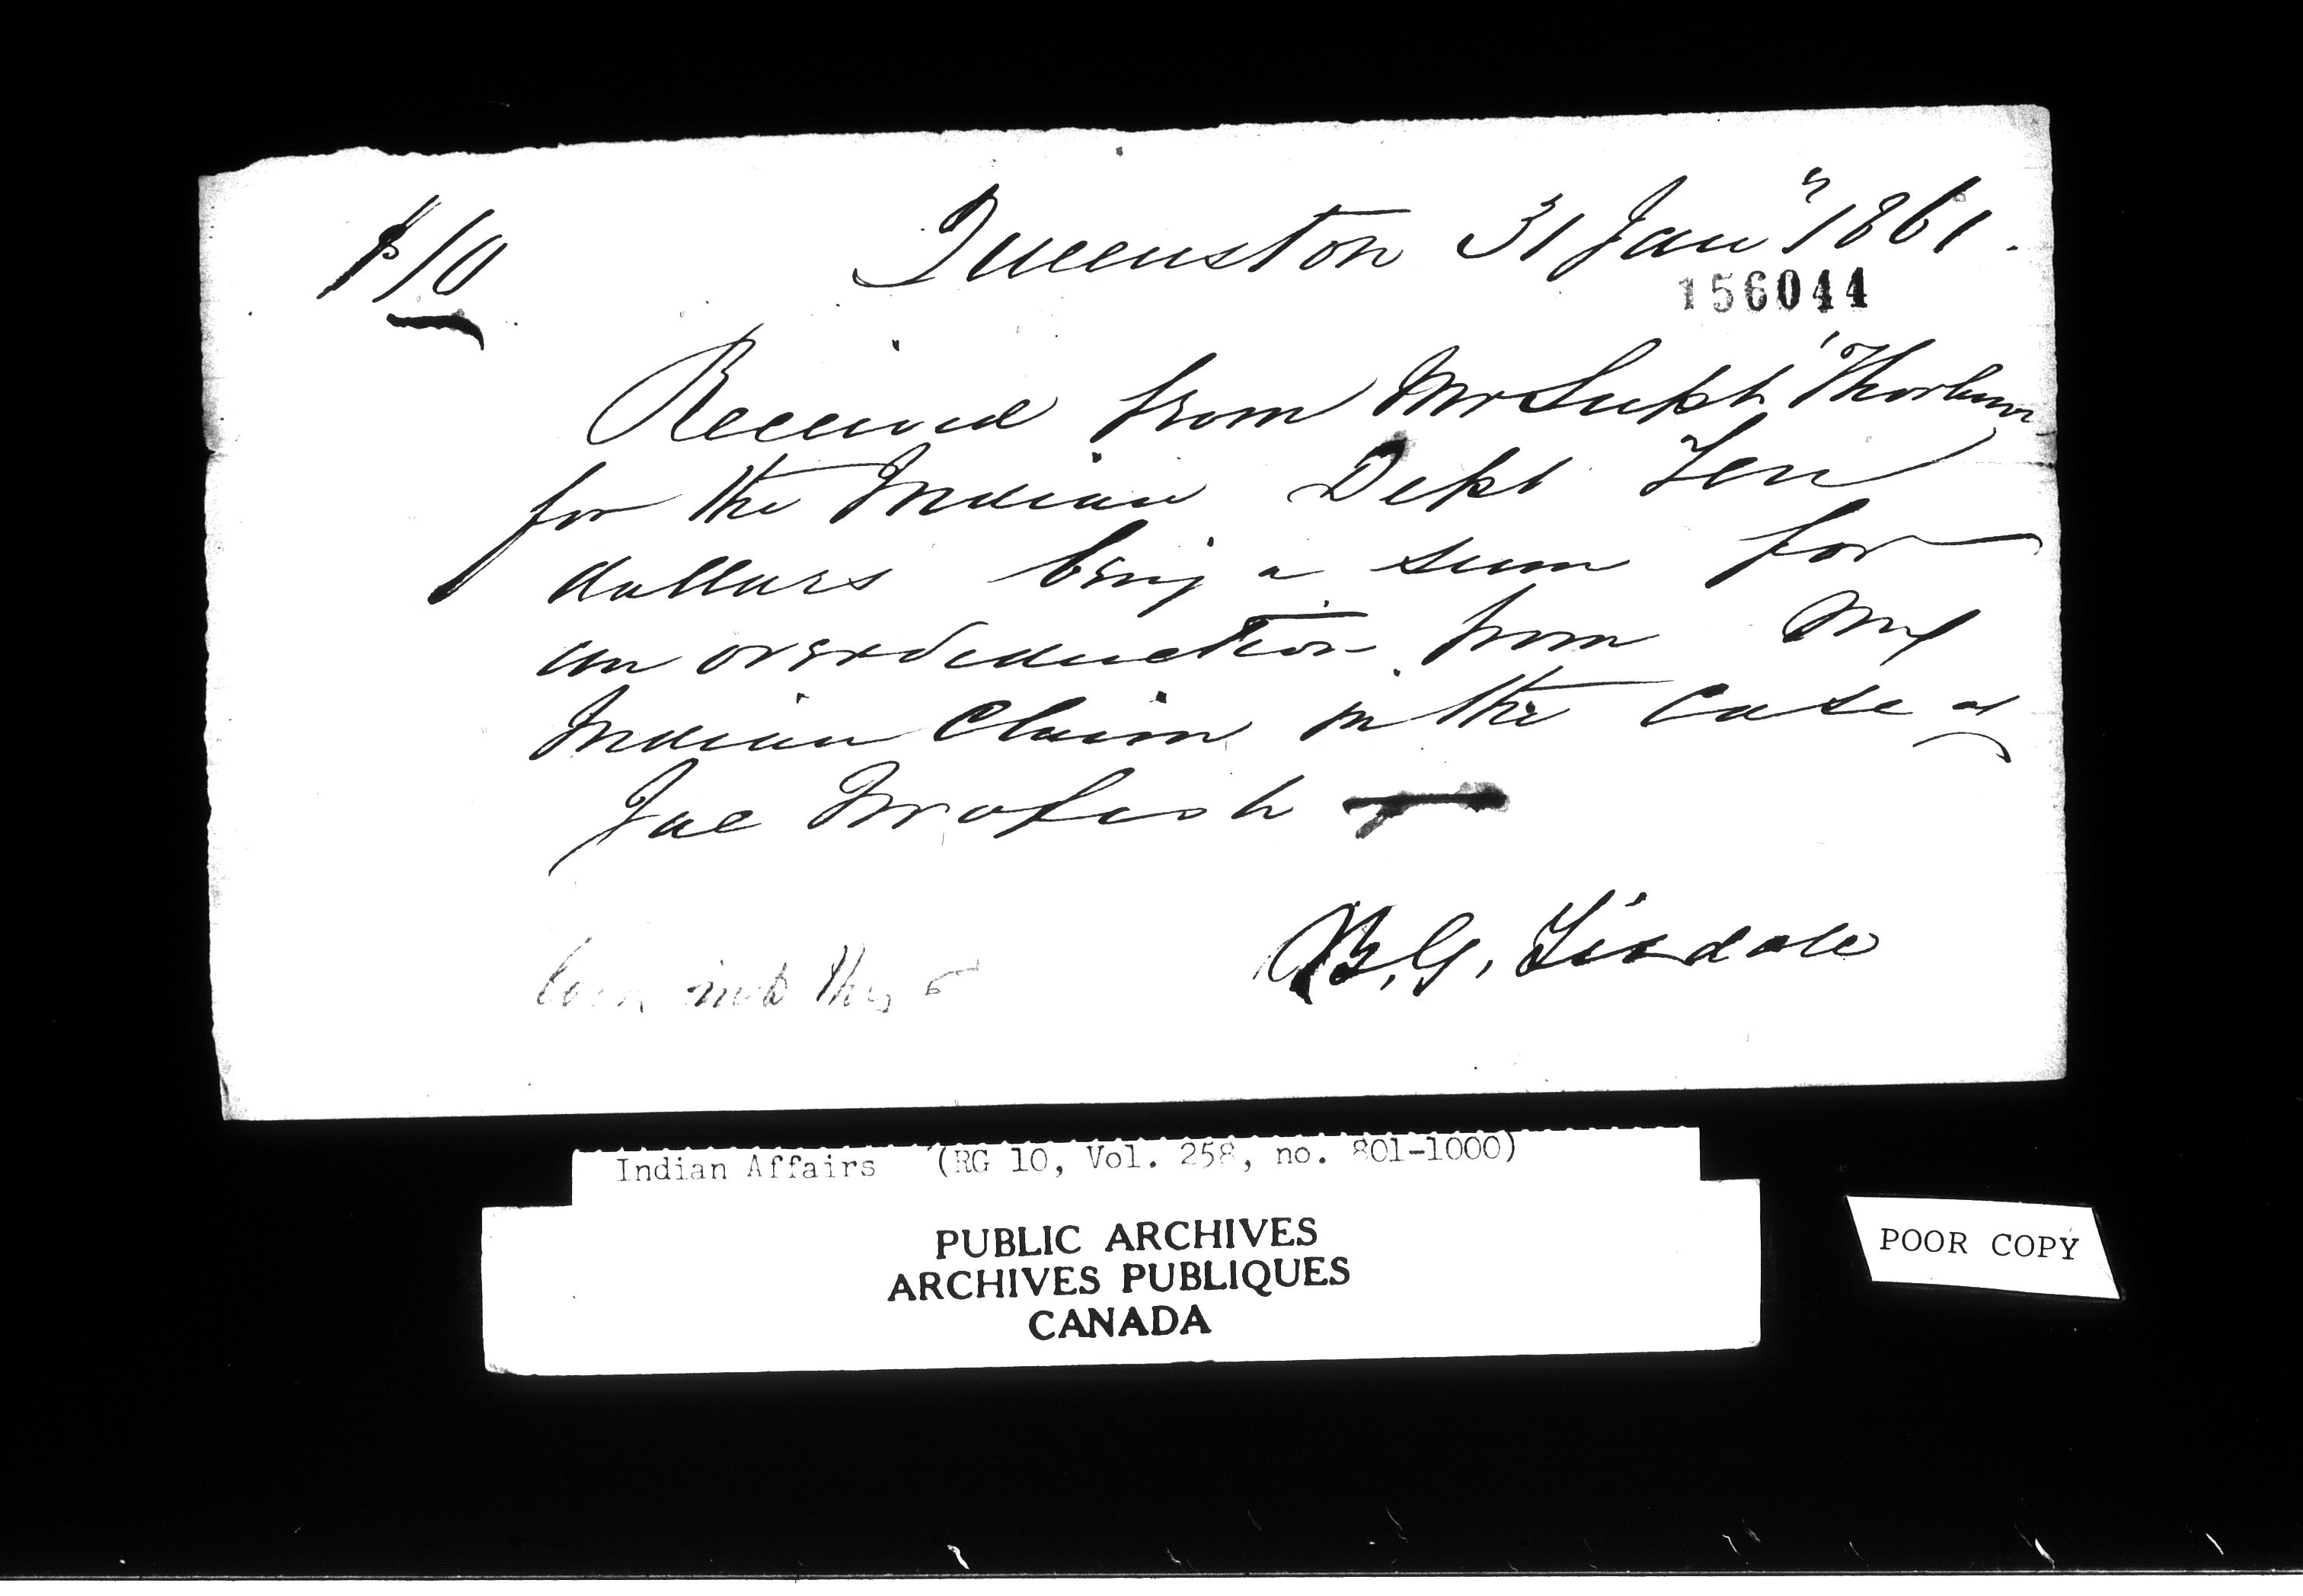 $10 Queenston 31 Jany 1861.
156044
Received from Mr Supt Thorburn
for the Indian Dept Ten
dollars being a sum for
an overdeduction from my
Indian Claim in the case of
Jac
B. G. Tisdale
Indian Affairs (RG 10, Vol. 258, no. 801-1000)
PUBLIC ARCHIVES
ARCHIVES PUBLIQUES
CANADA
POOR COPY